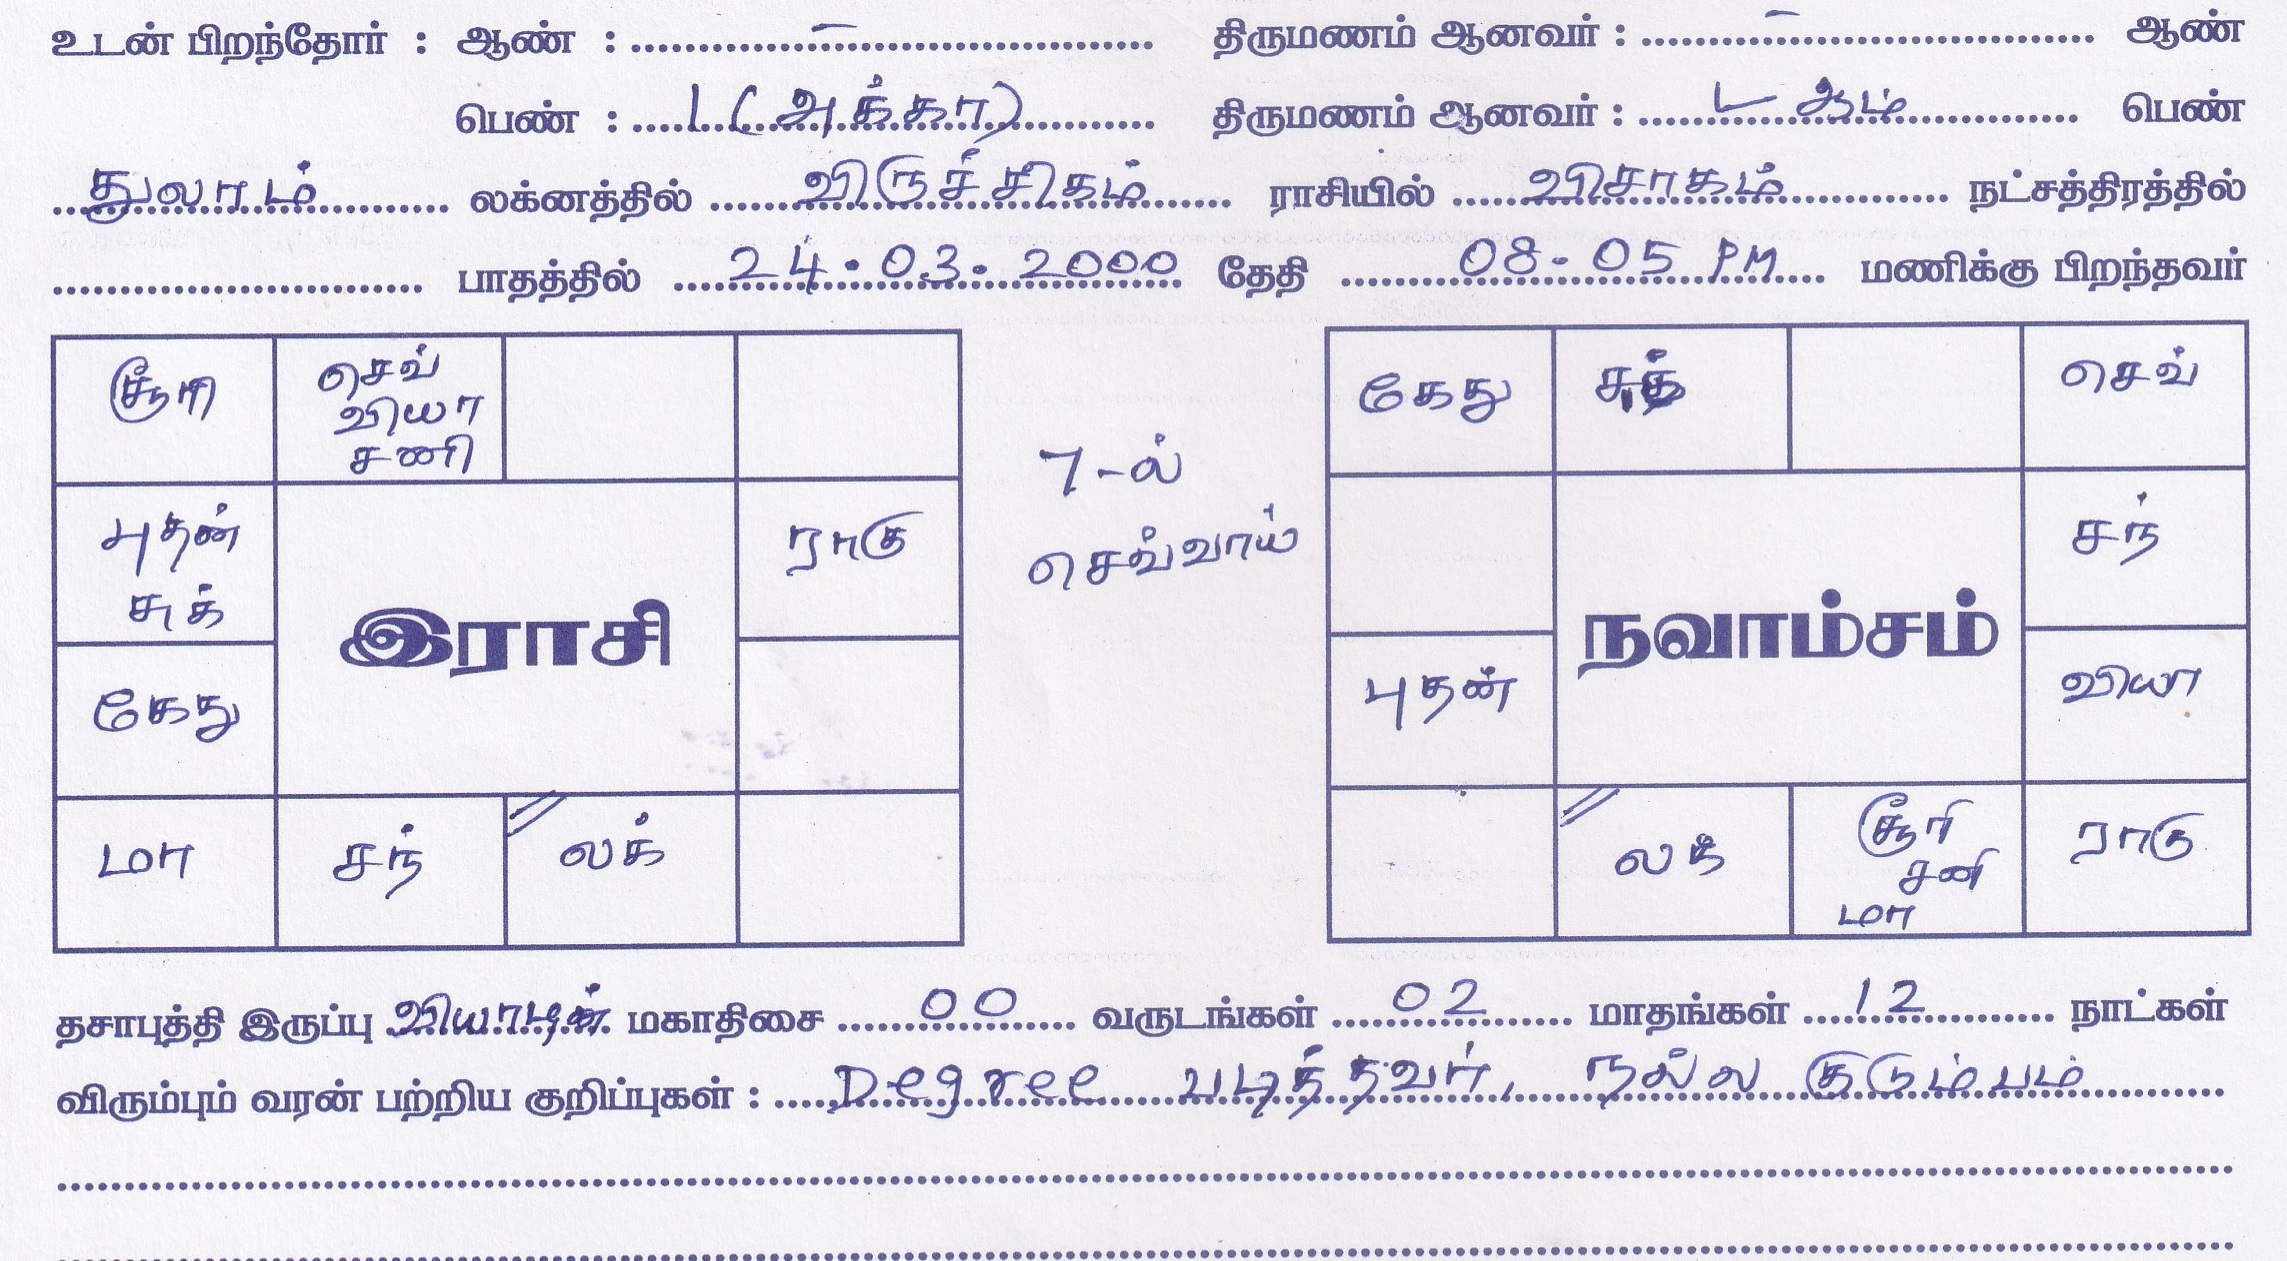 உடன் பிறந்தோர் : ஆண் : – திருமணம் ஆனவர் : – ஆண்
பெண் : 1 (அக்கா) திருமணம் ஆனவர் : பெண்
துலாம் லக்னத்தில் விருச்சிகம் ராசியில் விசாகம் நட்சத்திரத்தில்
பாதத்தில் 24.03.2000 தேதி 08-05 PM மணிக்கு பிறந்தவர்
சூரி
செவ்
வியா
சனி
புதன்
சுக்
ராகு
இராசி
கேது
மா
சந்
லக்
7-ல்
செவ்வாய்
கேது
சுக்
செவ்
சந்
நவாம்சம்
புதன்
வியா
லக்
சூரி
சனி
மா
ராகு
தசாபுத்தி இருப்பு வியாழன் மகாதிசை 00 வருடங்கள் 02 மாதங்கள் 12 நாட்கள்
விரும்பும் வரன் பற்றிய குறிப்புகள் : Degree படித்தவர், நல்ல குடும்பம்